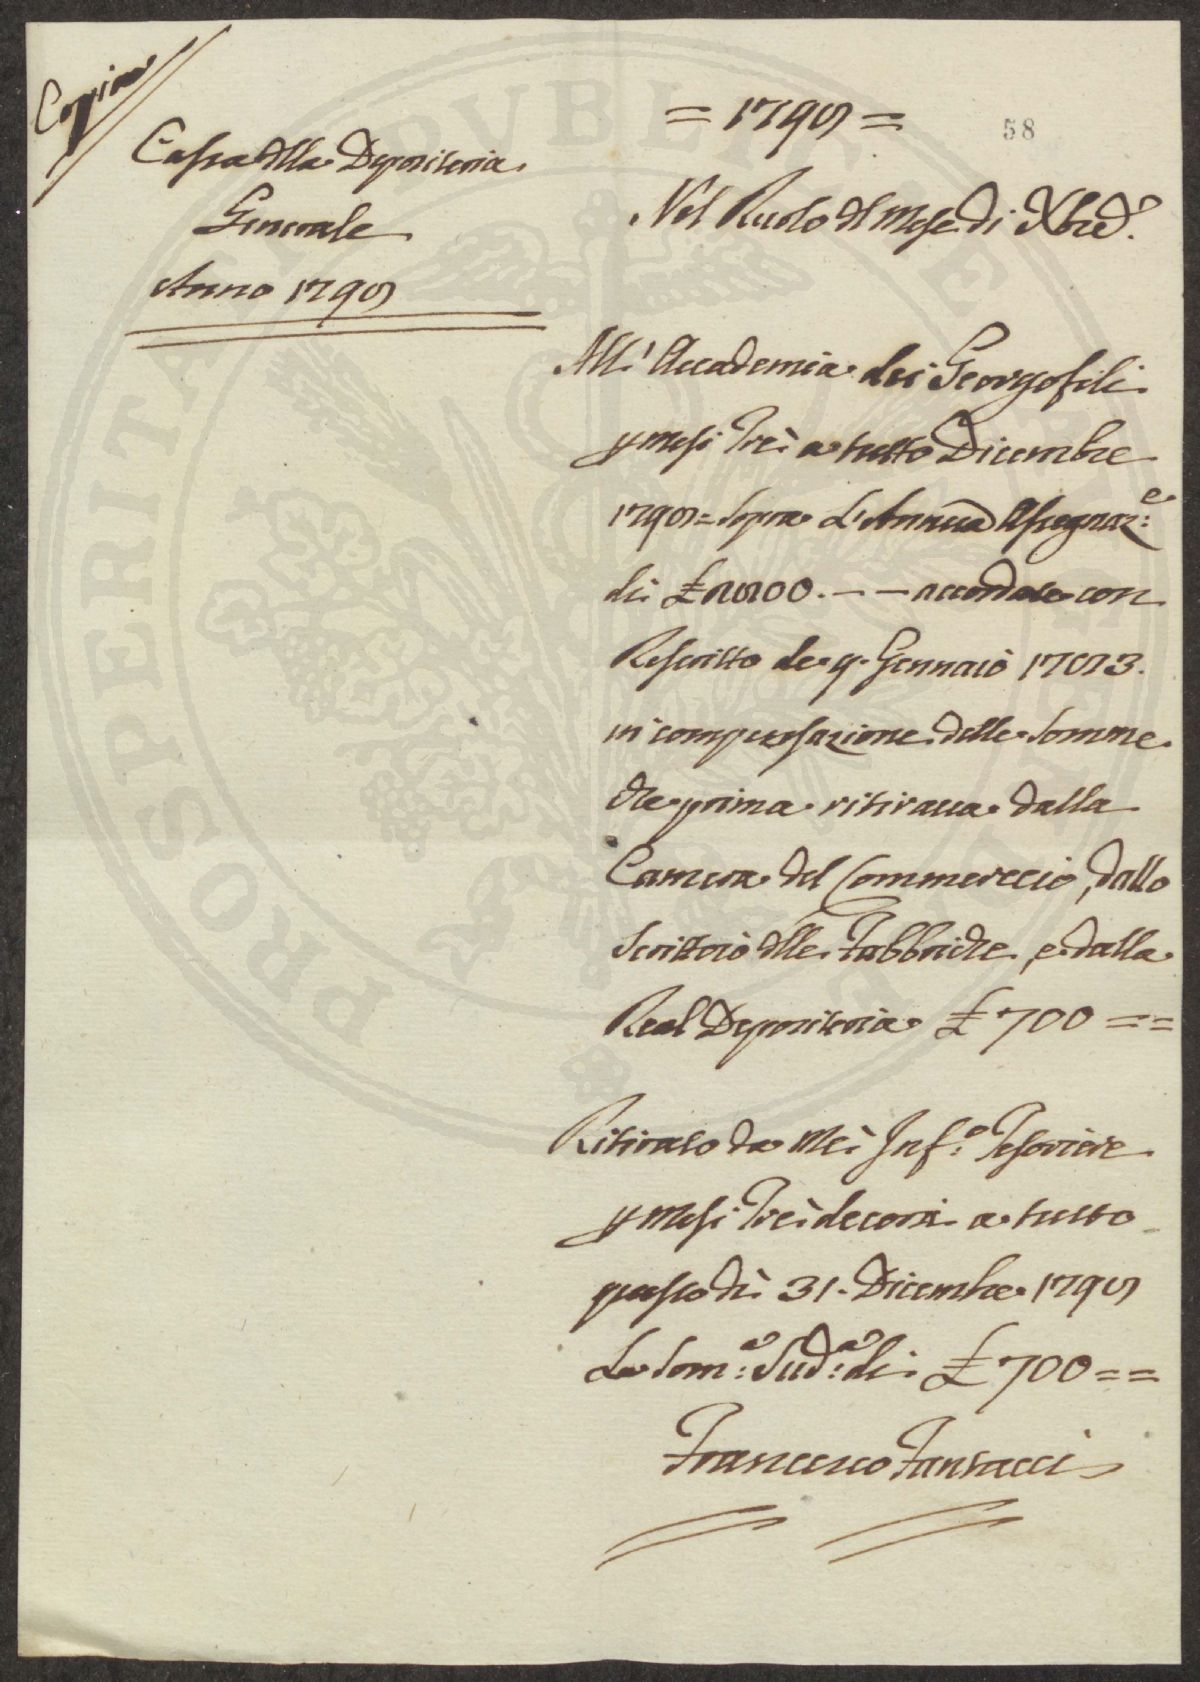 Copia
Cassa dlla Depositeria
Generale
Anno 1798
= 1798 =
58
Nel Ruolo dl Mese di Xbre d.º
All' Accademia dei Georgofili
p mesi Trè a tutto Dicembre
1798 = Sopra l'Annua Assegnaz:e
di £ 2800. - - accordata con
Rescritto de 9. Gennaio 1783.
in compensazione delle Somme
che prima ritirava dalla
Camera del Commerccio, dallo
Scrittoio dlle Fabbriche, e dalla
Real Depositeria £ 700 = =
Ritirato da Mè Inf:º Tesoriere
p Mesi Trè decorsi a tutto
questo dì 31. Dicembre 1798
La Som:a Sud:a di £ 700 = =
Francesco Fantacci
PROSPERITATI PUBLICAE AUGENDAE